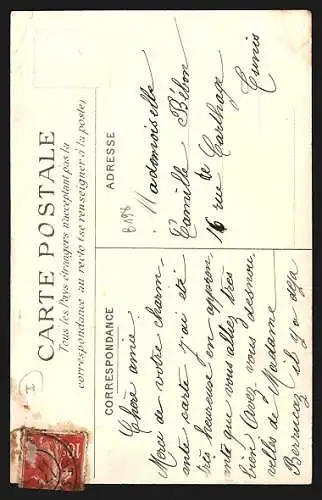 CARTE POSTALE
Tous les Pays étrangers n'acceptant pas la
correspondance au recto (se renseigner à la poste)
CORRESPONDANCE
ADRESSE
B198
Chère amie.
Merci de votre charm-
ante carte j'ai été
très heureuse en apprenn
ante que vous allez très
bien Avez vous des nou
velles de Madame
il y a déjà
Mademoiselle
Camille Bébon
16 rue de Carthage
Tunis
10